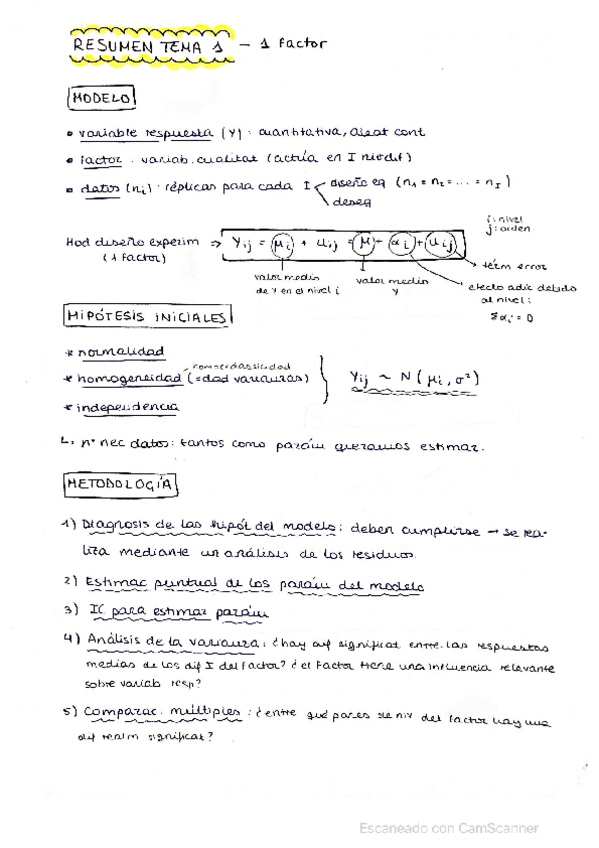 RESUMEN TEMA 1 - 1 Factor
MODELO
• variable respuesta (Y): cuantitativa, aleat cont
• factor. variab. cualitat (actúa en I niv dif)
• datos (ni). réplicas para cada I diseño eq (n1 = n2 = ... = nI)
deseq
i: nivel
j: orden
Mod diseño experim ⇒ Yij = μi + uij = μ + αi + uij
(1 factor)
valor medio
de Y en el nivel i
valor medio
Y
térm error
efecto adic debido
al nivel i
Σαi = 0
HIPÓTESIS INICIALES
* normalidad
homocedasticidad
* homogeneidad (=dad varianzas)
Yij ~ N(μi, σ²)
* independencia
L. nº nec datos: tantos como parám queramos estimar.
METODOLOGÍA
1) Diagnosis de las hipót del modelo: deben cumplirse → se rea-
liza mediante un análisis de los residuos.
2) Estimac puntual de los parám del modelo
3) IC para estimar parám
4) Análisis de la varianza: ¿hay dif significat entre las respuestas
medias de los dif I del factor? ¿el Factor tiene una influencia relevante
sobre variab resp?
5) Comparac. múltiples: ¿entre qué pares de niv del factor hay una
dif realm significat?
Escaneado con CamScanner